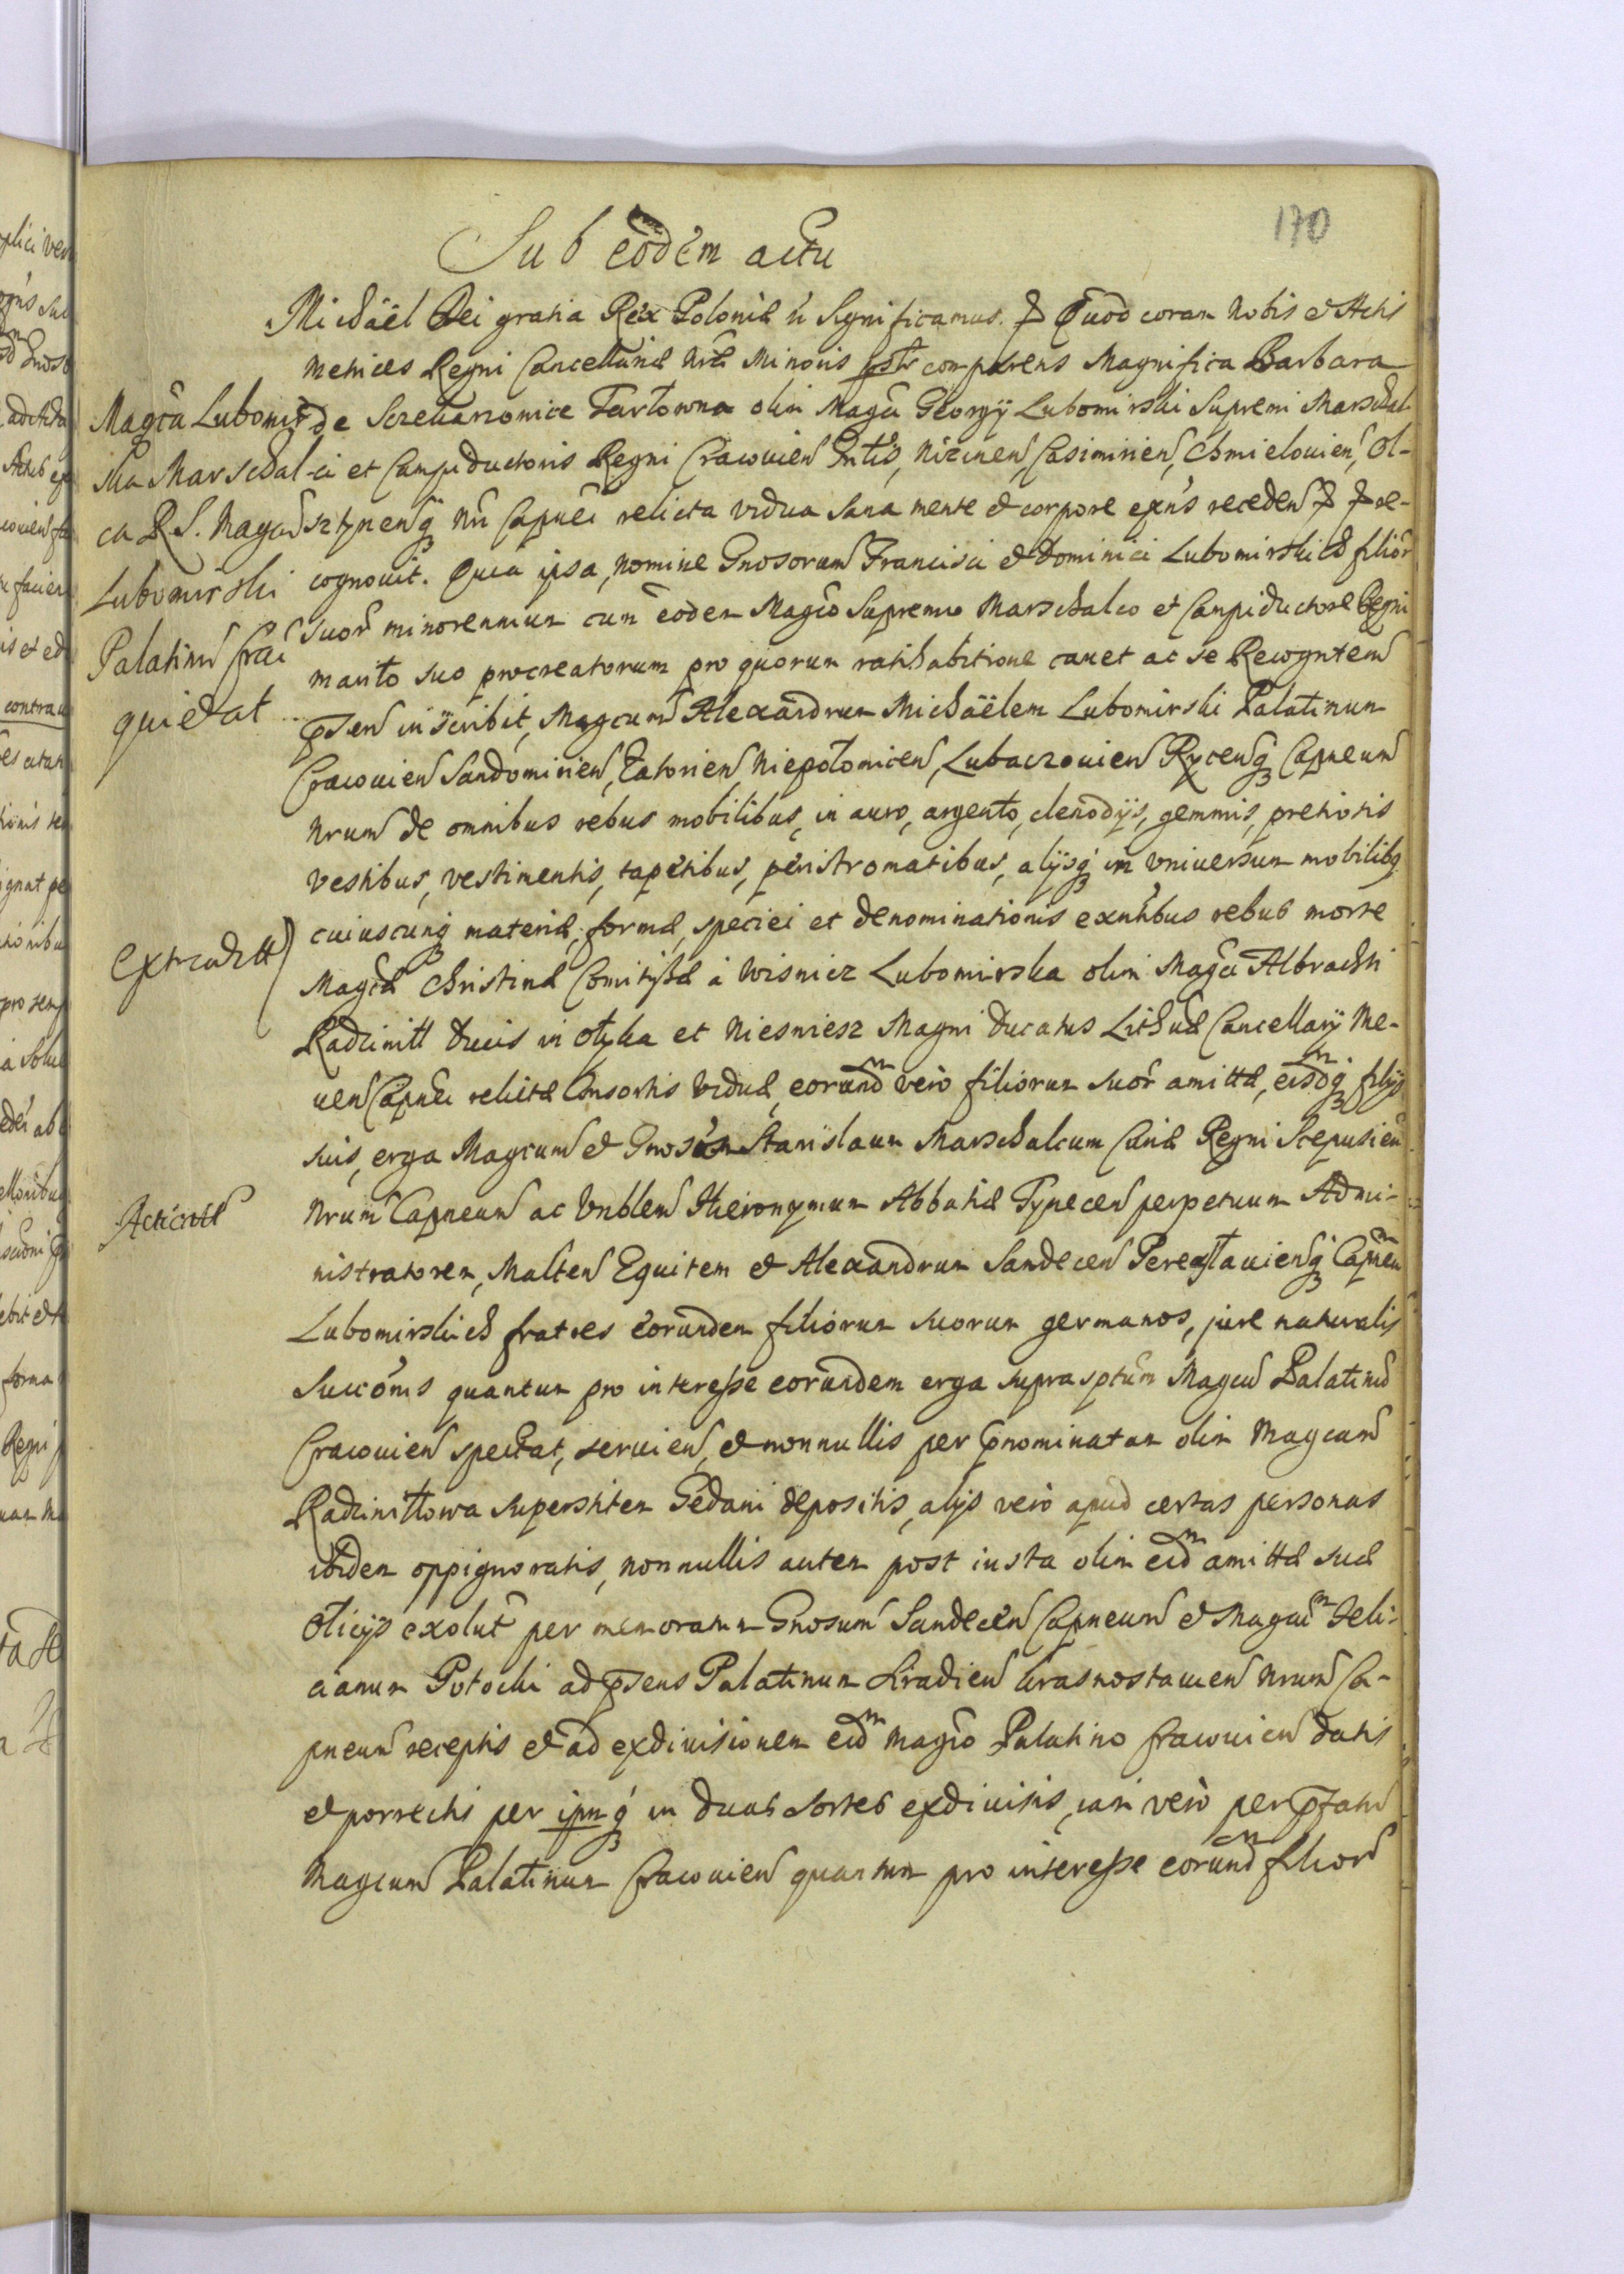 170
Sub eodem actu
Michaël Dei gratia Rex Poloniæ Significamus. Quod coram Nobis et Actis
Metrices Regni Cancellariæ Nræ Minoris comparens Magnifica Barbara
de Szczekarzowice Tarłowna olim Magci Georgij Lubomirski Supremi Marschal-
ci et Campiductoris Regni Cracovien Gntlis, Nizinen, Casimirien, Chmielovien, Ol-
sztynenq Nri Capnei relicta vidua sana mente et corpore exns receden re-
cognovit. Quia ipsa, nomine Gnosorum Francisci et Dominici Lubomirskich filior
suor minorennium cum eodem Magco Supremo Marschalco et Campiductore Regni
marito suo procreatorum pro quorum ratihabitione cavet ac se Recogntem
pnsen inscribit, Magcum Alexandrum Michaëlem Lubomirski Palatinum
Cracovien Sandomirien, Zatorien Niepołomicen, Lubaczovien Rycenq Capneum
Nrum de omnibus rebus mobilibus, in auro, argento, clenodijs, gemmis, pretiosis
vestibus, vestimentis, tapetibus, peristromatibus, alijsq in universum mobilibq
cuiuscunq materiæ, formæ, speciei et denominationis exntibus rebus morte
Magcæ Christinæ Comitissæ à Wisnicz Lubomirska olim Magci Albrachti
Radziwiłł Ducis in Ołyka et Nieswiesz Magni Ducatus Lithuæ Cancellarij Me-
ven Capnei relictæ Consortis viduæ, eorundm vero filiorum suor amittæ, eisdmq filijs
suis, erga Magcum et Gnosum Stanislaum Marschalcum Curiæ Regni Scepusien
Nrum Capneum ac Vnblem Hieronymum Abbatiæ Tynecen perpetuum Admi-
nistratorem, Malten Equitem et Alexandrum Sandecen Pereasłavienq Capneum
Lubomirskich fratres eorundem filiorum suorum germanos, jure naturalis
Succōnis quantum pro interesse eorundem erga suprasptum Magcum Palatinum
Cracovien spectat, servien, et nonnullis per pnominatam olim Magcam
Radziwiłłowa superstitem Gedani depositis, alijs vero apud certas personas
ibidem oppignoratis, nonnullis autem post iusta olim eidm amittæ suæ
exolut per memoratum Gnosum Sandecen Capneum et Magcum Feli-
cianum Potocki ad pnsens Palatinum Siradien Krasnostavien Nrum Ca-
pneum receptis et ad exdivisionem eidm Magco Palatino Cracovien datis
et porrectis per ipmq in duas sortes exdivisis, iam vero per pfatum
Magcum Palatinum Cracovien quantum pro interesse eorundm filior
Magca Lubomir
ska Marschal-
ca R. S. Magcum
Lubomirski
Palatinum Crac
quietat
Extradtt
Acticatt